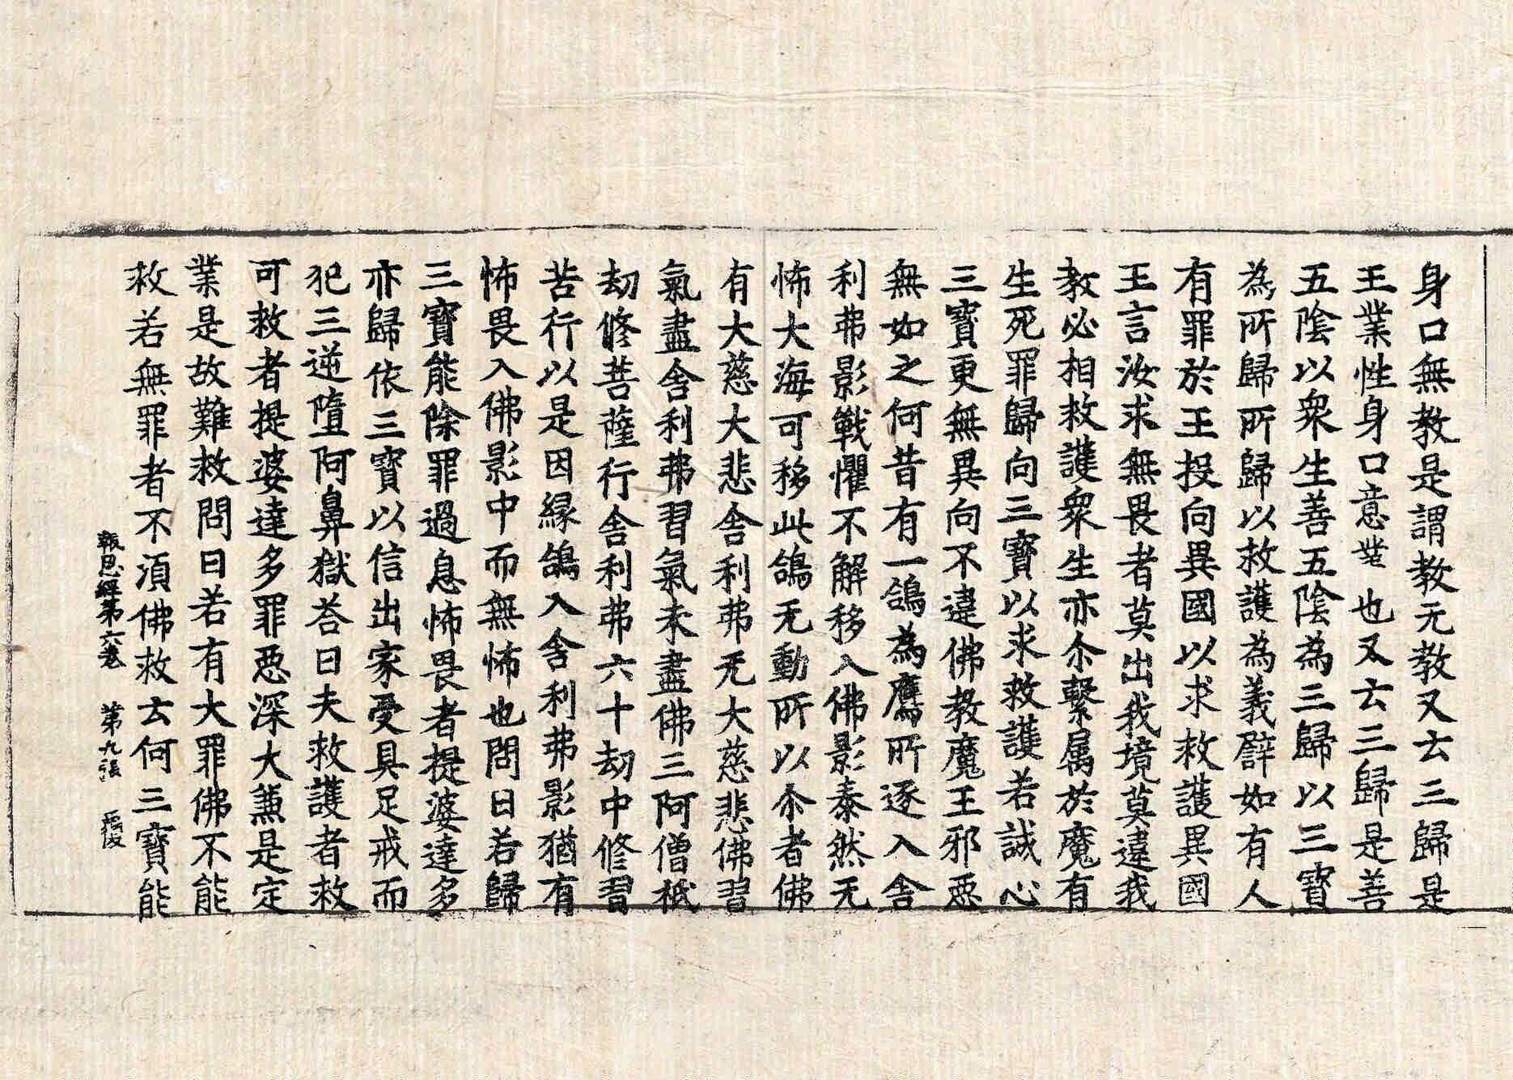 身口無教是謂教无教又云三歸是
王業性身口意業也又云三歸是善
五陰以衆生善五陰為三歸以三寶
為所歸所歸以救護為義譬如有人
有罪於王投向異國以求救護異國
王言汝求無畏者莫出我境莫違我
教必相救護衆生亦尒繫属於魔有
生死罪歸向三寶以求救護若誠心
三寶更無異向不違佛教魔王邪惡
無如之何昔有一鴿為鷹所逐入舍
利弗影戰懼不解移入佛影泰然无
怖大海可移此鴿无動所以尒者佛
有大慈大悲舍利弗无大慈悲佛習
氣盡舍利弗習氣未盡佛三阿僧祇
劫修菩薩行舍利弗六十劫中修習
苦行以是因緣鴿入舍利弗影猶有
怖畏入佛影中而無怖也問曰若歸
三寶能除罪過息怖畏者提婆達多
亦歸依三寶以信出家受具足戒而
犯三逆墮阿鼻獄荅曰夫救護者救
可救者提婆達多罪惡深大兼是定
業是故難救問曰若有大罪佛不能
救若無罪者不湏佛救云何三寶能
報恩經第六卷 第九張